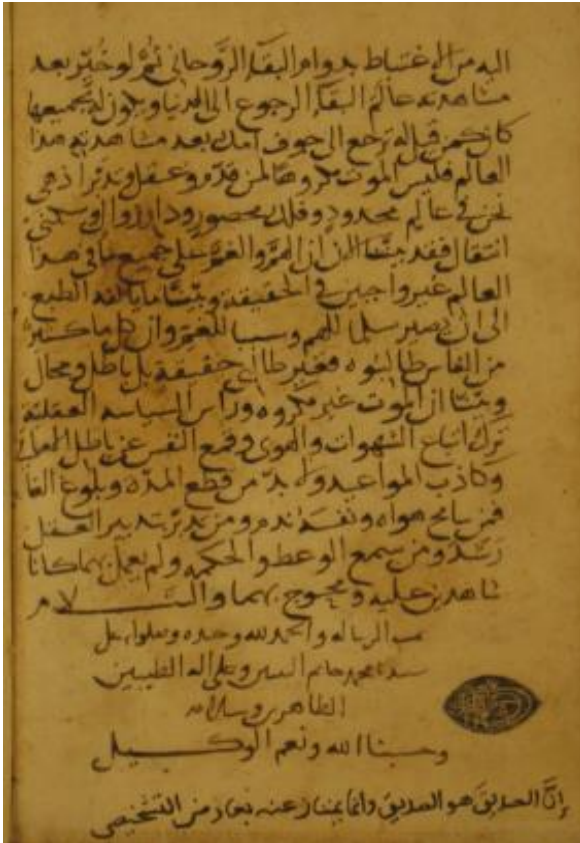 اليه من الاغتباط بدوام البقاء الروحاني ثم لو خير بعد
مشاهدته عالم البقاء الرجوع الى الدنيا ويكون له جميعها
كان كمن قيل له ترجع الى جوف امك بعد مشاهدته هذا
العالم فليس الموت مكروها لمن قدم وعقل وتدبر اذ هي
نحن في عالم محدود وفلك محصور ودار زوال وسكنى
انتقال فقد بينا الان ان الهم والغم على جميع ما في هذا
العالم غير واجبين في الحقيقة وبينا ما يالفه الطبع
الى ان يصير سلما للهم وسببا للغم وان كل ما كثير
من الناس طالبوه فغير طائل حقيقة بل باطل ومحال
وبينا ان الموت غير مكروه وراس السياسة العقلية
ترك اتباع الشهوات والهوى وقمع النفس عن باطل
وكاذب المواعيد ولا بد من قطع المدة وبلوغ
فمن هواه ونفسه ندم ومن تدبر بتدبير العقل
رشد ومن سمع الوعظ والحكمه ولم يعمل بهما كانا
شاهدين عليه ومحجوج بهما والسلام
تمت الرساله والحمد لله وحده
سيدنا محمد خاتم النبيين وعلى اله الطيبين
الطاهرين وسلامه
وحسبنا الله ونعم الوكيل
إنَّ الصديقَ هو الصديق وانما يمتاز عنه التشخيص